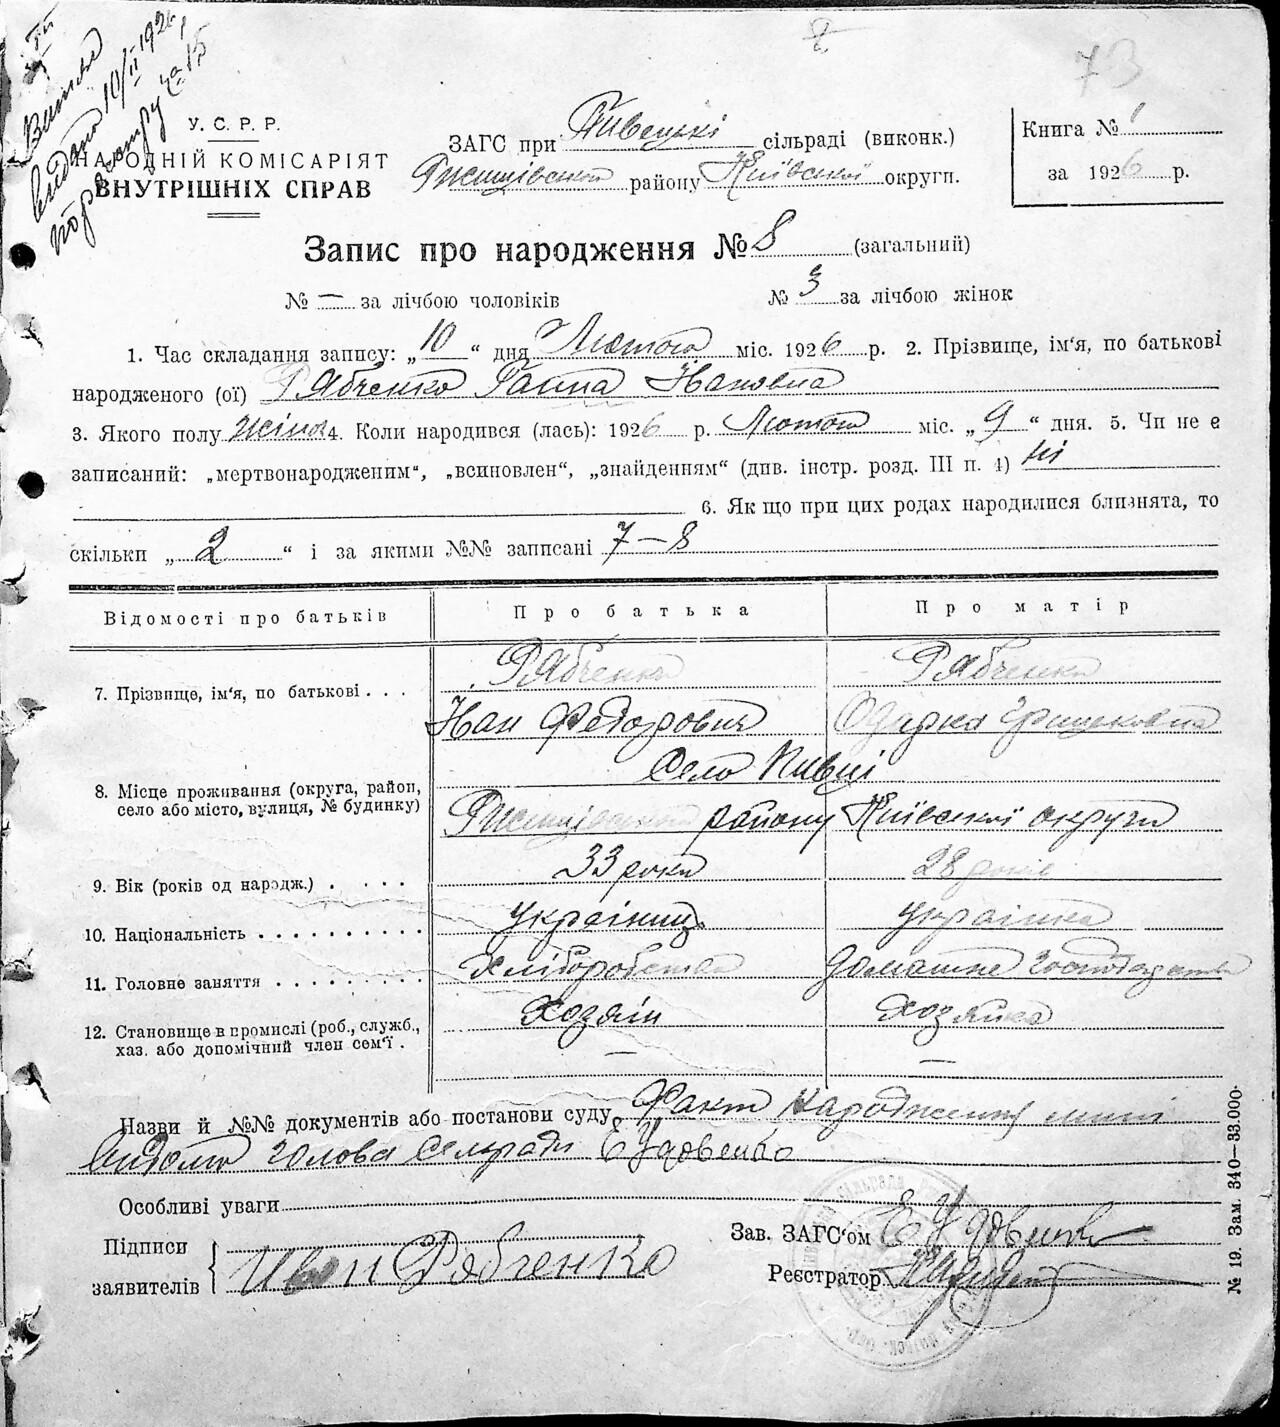 73
Витяг
видано 10/II 1926,
по реєстру за 15
У. С. Р. Р.
НАРОДНІЙ КОМІСАРІЯТ
ВНУТРІШНІХ СПРАВ
ЗАГС при Пивецькі сільраді (виконк.)
Ржищівськом району Київської округи.
Книга № 1
за 1926 р.
Запис про народження № 8 (загальний)
№ — за лічбою чоловіків № 3 за лічбою жінок
1. Час складання запису: „10“ дня Лютого міс. 1926 р. 2. Прізвище, ім'я, по батькові
народженого (ої) Рябченко Ганна Івановна
3. Якого полу жіноч 4. Коли народився (лась): 1926 р. Лютого міс. „9“ дня. 5. Чи не є
записаний: „мертвонародженим“, „всиновлен“, „знайденням“ (див. інстр. розд. III п. 4) ні
6. Як що при цих родах народилися близнята, то
скільки „2“ і за якими №№ записані 7—8
Відомості про батьків Про батька Про матір
7. Прізвище, ім'я, по батькові . . . Рябченко Рябченко
Іван Федорович Одарка
Село Пивці
8. Місце проживання (округа, район,
село або місто, вулиця, № будинку) району Київської округи
9. Вік (років од народж.) . . . . 33 роки 28 років
10. Національність . . . . . . . . . . українець українка
11. Головне заняття . . . . . . . . . Хліборобство домашнє господарство
12. Становище в промислі (роб., служб., Хозяін Хозяйка
хаз. або допомічний член сем'ї . — —
Назви й №№ документів або постанови суду Факт народження мині
відомо голова сельради Є Удовенко
Особливі уваги
Підписи
заявителів Иван Рябченко
Зав. ЗАГС'ом Є Удовенко
Реєстратор
№ 19. Зам. 340—33.000.